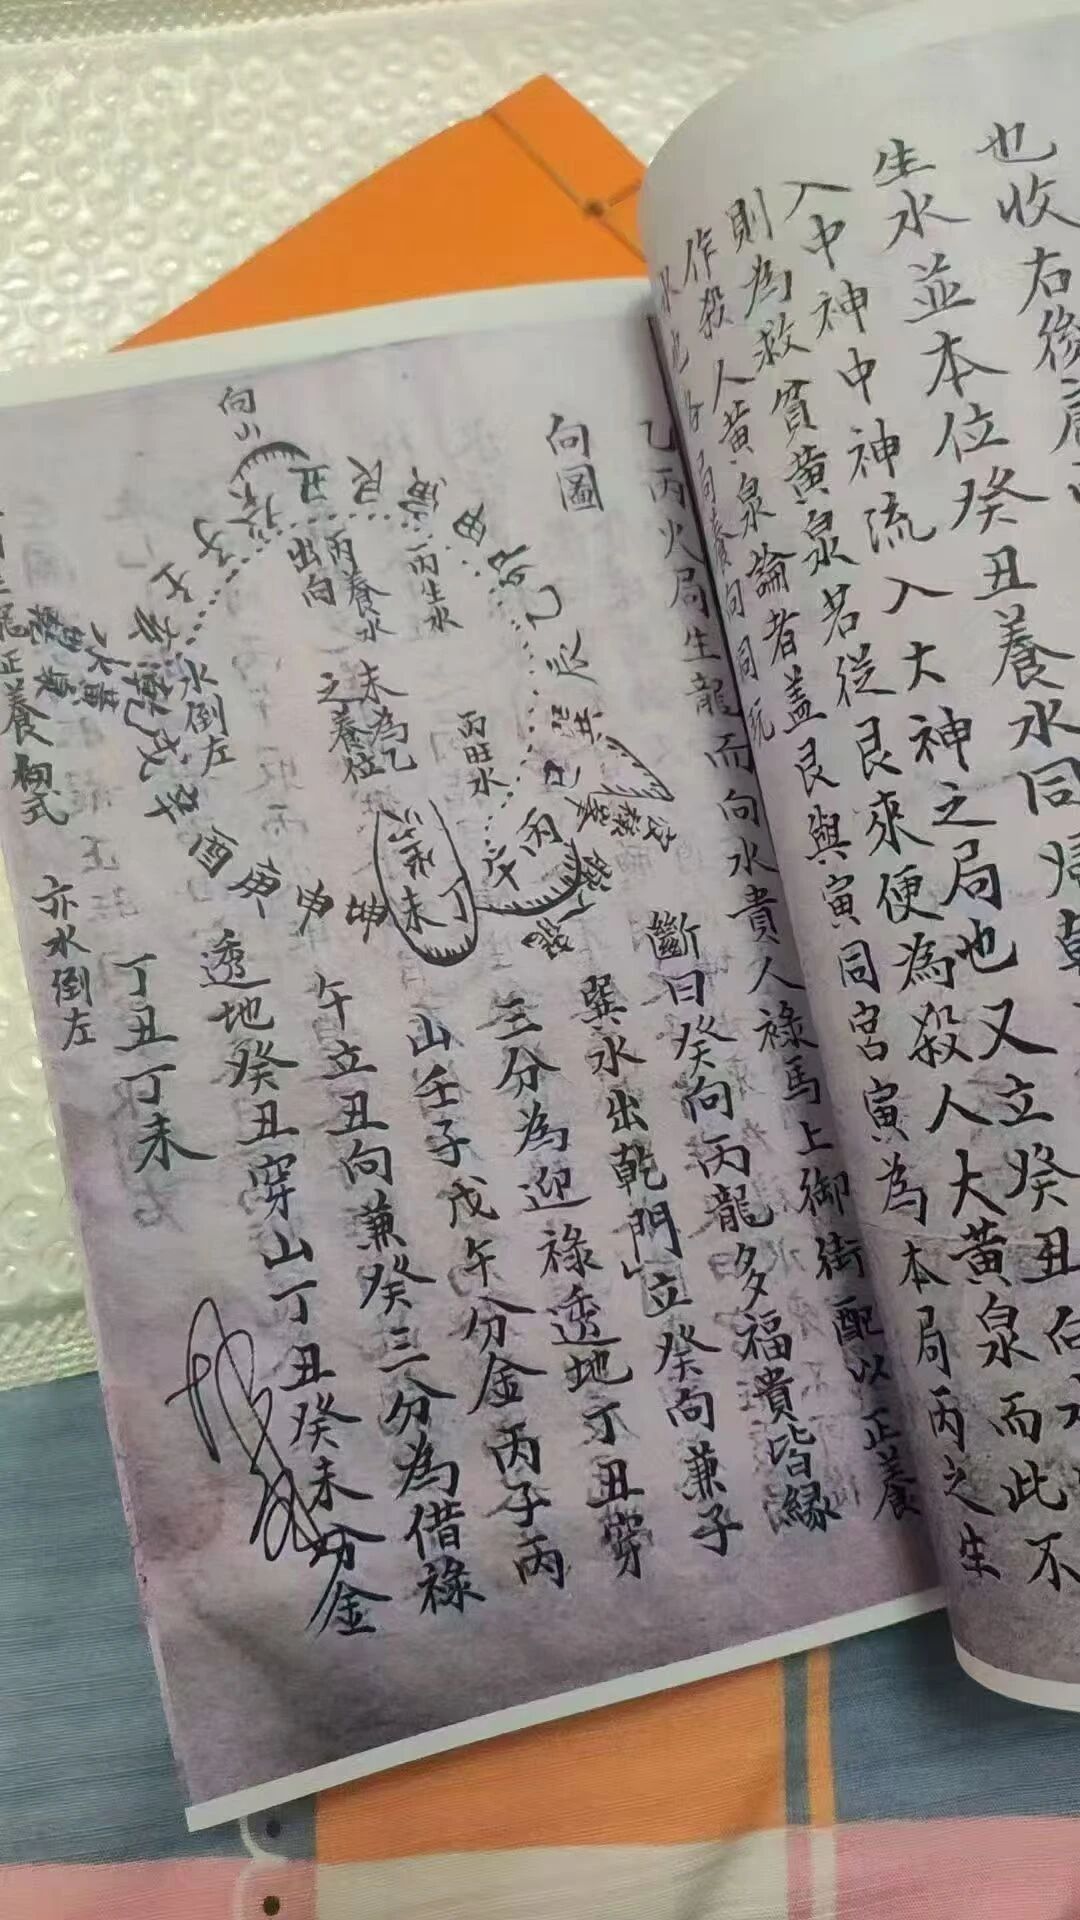 也收右後
生水並本位癸丑養水同歸乾
入中神中神流入大神之局也又立癸丑向
則為救貧黃泉若從艮來便為殺人大黃泉而此不
作殺人黃泉論者蓋艮與寅同宮寅為本局丙之生
局養向同玩
乙丙火局生龍而向水貴人祿馬上御街配以正養
向圖
斷曰癸向丙龍多福貴皆緣
巽水出乾門立癸向兼子
三分為迎祿透地丁丑穿
山壬子戊午分金丙子丙
午立丑向兼癸三分為借祿
透地癸丑穿山丁丑癸未分金
丁丑丁未
向山
丑
艮
寅
甲
卯
乙
辰
巳
丙
午
丁
未
坤
申
庚
酉
辛
戌
乾
亥
壬
子
癸
丙養水
出向
丙生水
未為乙
之養位
丙旺水
水倒左
正養翎式
亦水倒左